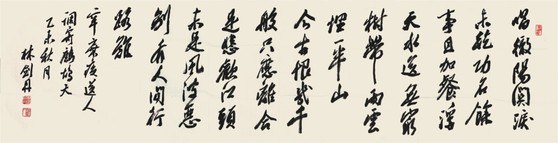 唱徹陽関淚
未乾功名餘
事且加餐浮
天水送無窮
樹帶雨雲
埋一半山
今古恨幾千
般只應離合
是悲歡江頭
未是風波惡
別有人間行
路難
辛棄疾送人
調寄鷓鴣天
乙未秋月
林劍丹